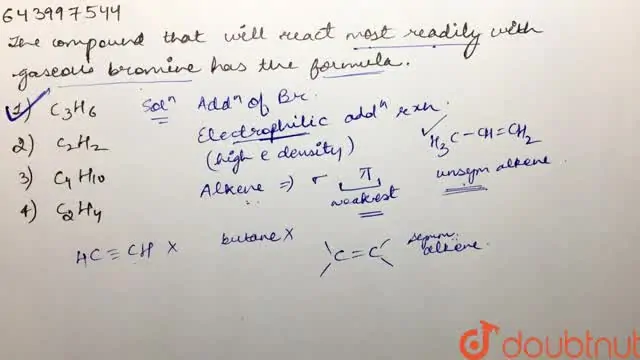 643997544
The compound that will react most readily with
gaseous bromine has the formula.
1) C3H6
2) C2H2
3) C4H10
4) C2H4
Solⁿ Addⁿ of Br.
Electrophilic addⁿ rxn.
(high e density)
Alkene => σ π
weakest
H3C-CH=CH2
unsym alkene.
HC≡CH X
butane X
C=C
symm.
alkene.
doubtnut